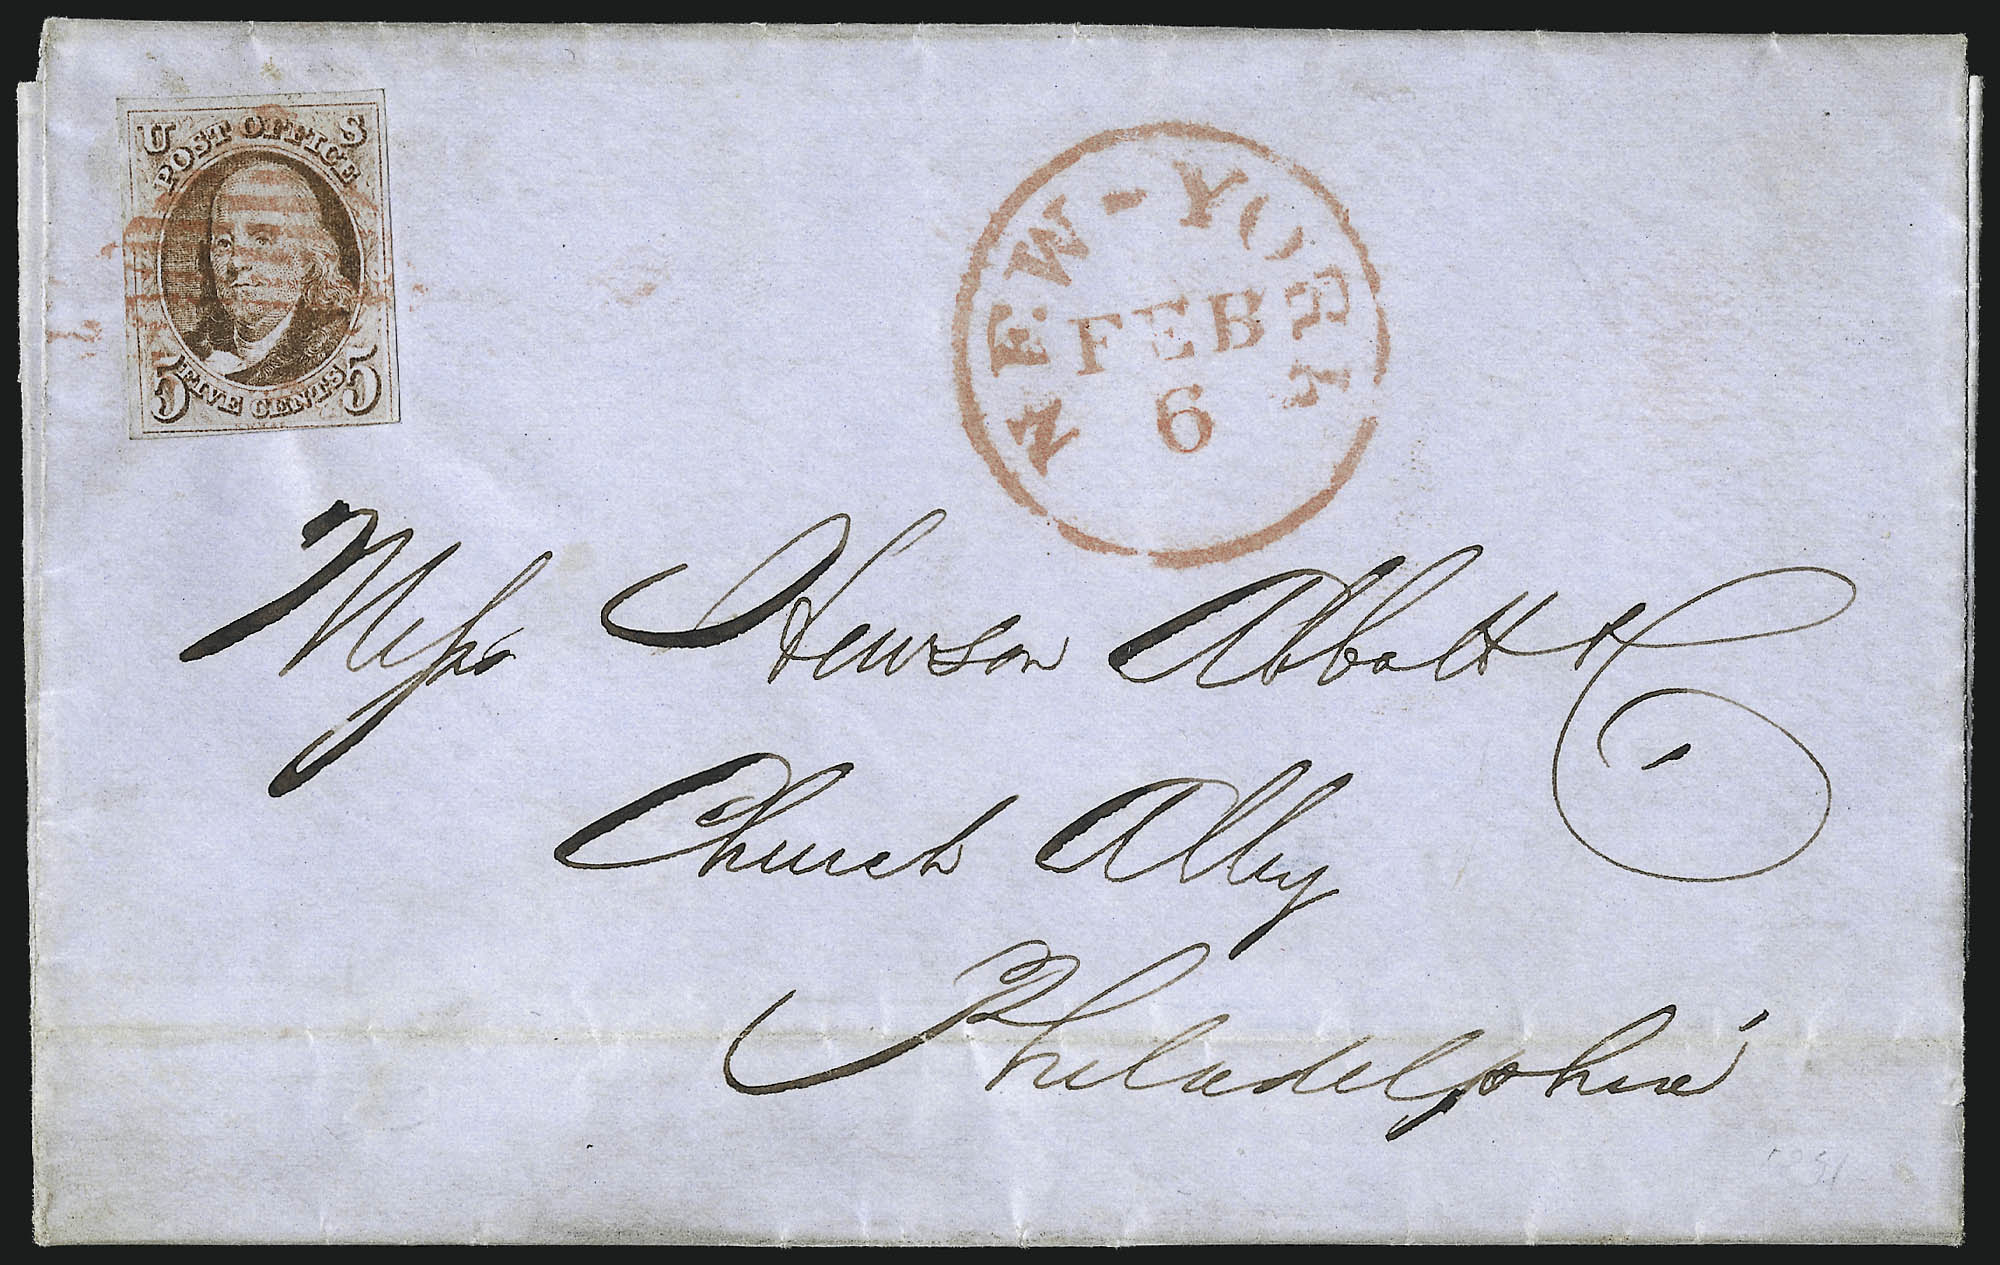 U S
POST OFFICE
5 FIVE CENTS 5
NEW-YORK
FEB
6
Messrs Hewson Abbott & Co
Church Alley
Philadelphia